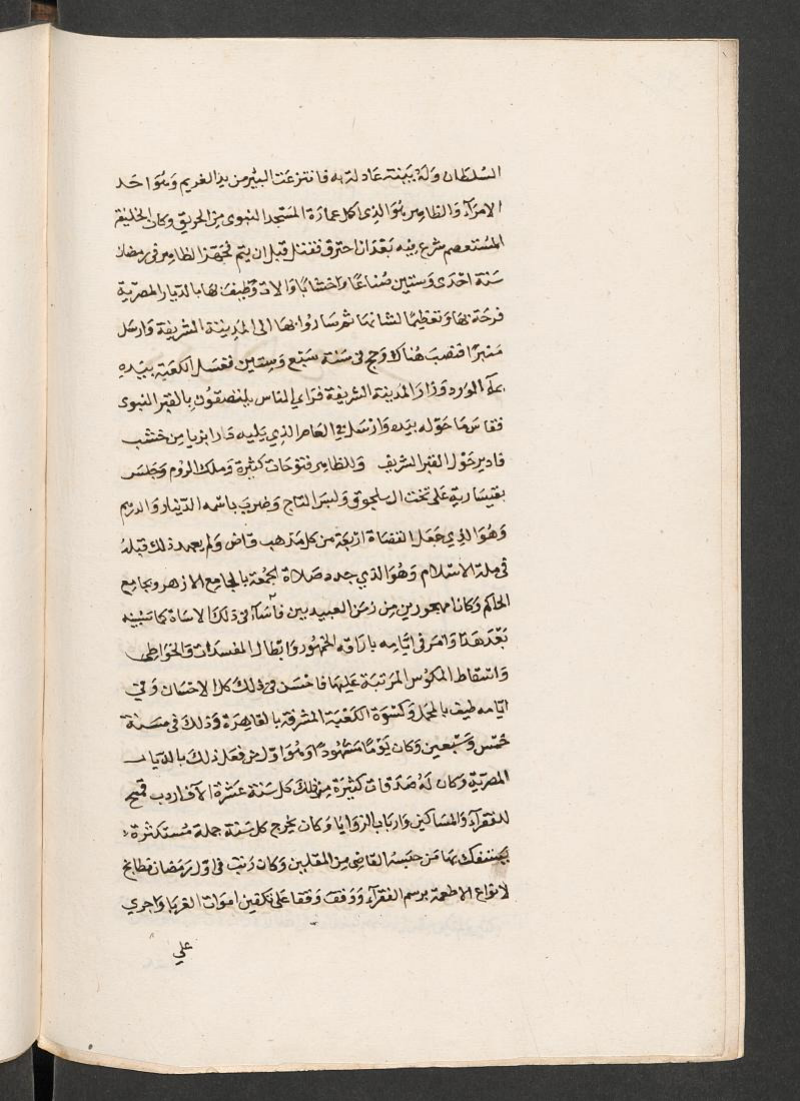 السلطان وله بينة عادلة به فانتزعت البير من يد الغريم وهو احد
الامرآء والظاهر هو الذي اكمل عمارة المسجد النبوي من الحريق وكان الخليفة
المستعصم شرع فيه بعد ان احترق فقتل قبل ان يتم فجهز الظاهر في رمضان
سنة احدى وستين صناعا واخشابا وآلات وطيف بها بالديار المصرية
فرحة بها وتعظيما لشانها ثم ساروا بها الى المدينة الشريفة وارسل
منبرا فنصب هناك وحج في سنة سبع وستين فغسل الكعبة بيده
بمآء الورد وزار المدينة الشريفة فراى الناس يلتصقون بالقبر النبوى
فقاس ما حوله بيده وارسل في العام الذي يليه دارابزيا من خشب
فادير حول القبر الشريف وللظاهر فتوحات كثيرة وملك الروم وجلس
بقيسارية على تخت ال سلجوق ولبس التاج وضرب باسمه الدينار والدرهم
وهو الذي جعل القضاة اربعة من كل مذهب قاض ولم يعهد ذلك قبله
في ملة الاسلام وهو الذي جدد صلاة الجمعة بالجامع الازهر وبجامع
الحاكم وكانا مهجورين من زمن العبيديين فاسآء في ذلك الاساة كما سنبينه
بعد هذا وامر في ايامه باراقه الخمور وابطال المفسدات والخواطى
واسقاط المكوس المرتبة عليها فاحسن في ذلك كل الاحسان وفي
ايامه طيف بالمحمل وكسوة الكعبة المشرفة بالقاهرة وذلك في سنة
خمس وسبعين وكان يوما مشهودا وهو اول من فعل ذلك بالديار
المصرية وكان له صدقات كثيرة من ذلك كل سنة عشرة الآف اردب قمح
للفقرآء والمساكين وارباب الزوايا وكان يخرج كل سنة جملة مستكثرة
يستفك بها من حبسه القاضي من المفلسين وكان رتب في اول رمضان مطابخ
لانواع الاطعمة برسم الفقرآء ووقف وقفا على تكفين اموات الغربا واجري
على